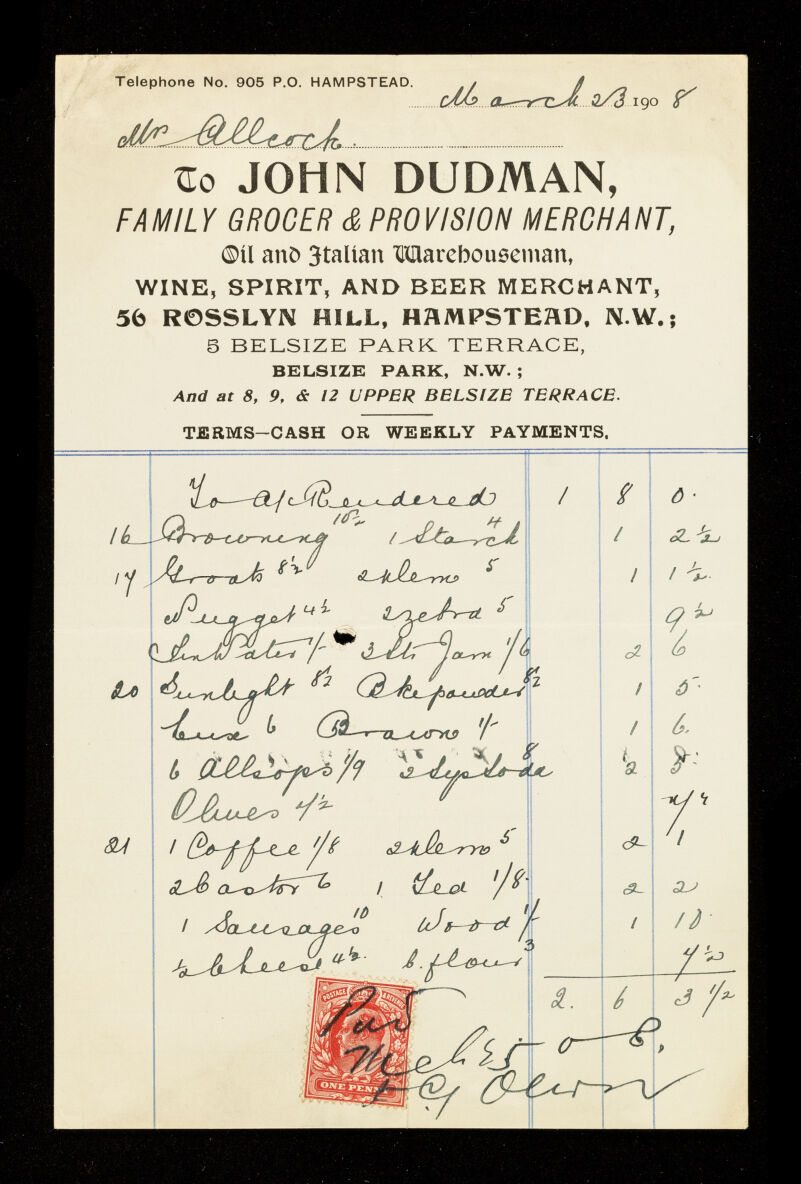 Telephone No. 905 P.O. HAMPSTEAD.
March 23 1908
Mrs Allcock.
To JOHN DUDMAN,
FAMILY GROCER & PROVISION MERCHANT,
Oil and Italian Warehouseman,
WINE, SPIRIT, AND BEER MERCHANT,
56 ROSSLYN HILL, HAMPSTEAD, N.W.;
5 BELSIZE PARK TERRACE,
BELSIZE PARK, N.W.;
And at 8, 9, & 12 UPPER BELSIZE TERRACE.
TERMS—CASH OR WEEKLY PAYMENTS.
To a/c Rendered 1 8 0
16 Browning 10½ 1 Starch 4 1 2½
17 Groats 8½ 2 klem 5 1 1½
Nugget 4½ 2 zebra 5 9½
Water 1/- 3 Jam 1/6 2 6
20 Sunlight 8½ Bkepowder 8½ 1 5
Lux 6 Brawn 1/- 1 6
6 Allsops 1/9 2 Syp Soda 8 2 5
Olives 4½
21 1 Coffee 1/8 2 klemo 5 2 1
2 Castor 6 1 Tea 1/8 2 2
1 Sausages 10 Wood 1/- 1 10
½ Cheese 4½ 6. flour 3 4½
2. 6 3½
POSTAGE & REVENUE
ONE PENNY
Paid